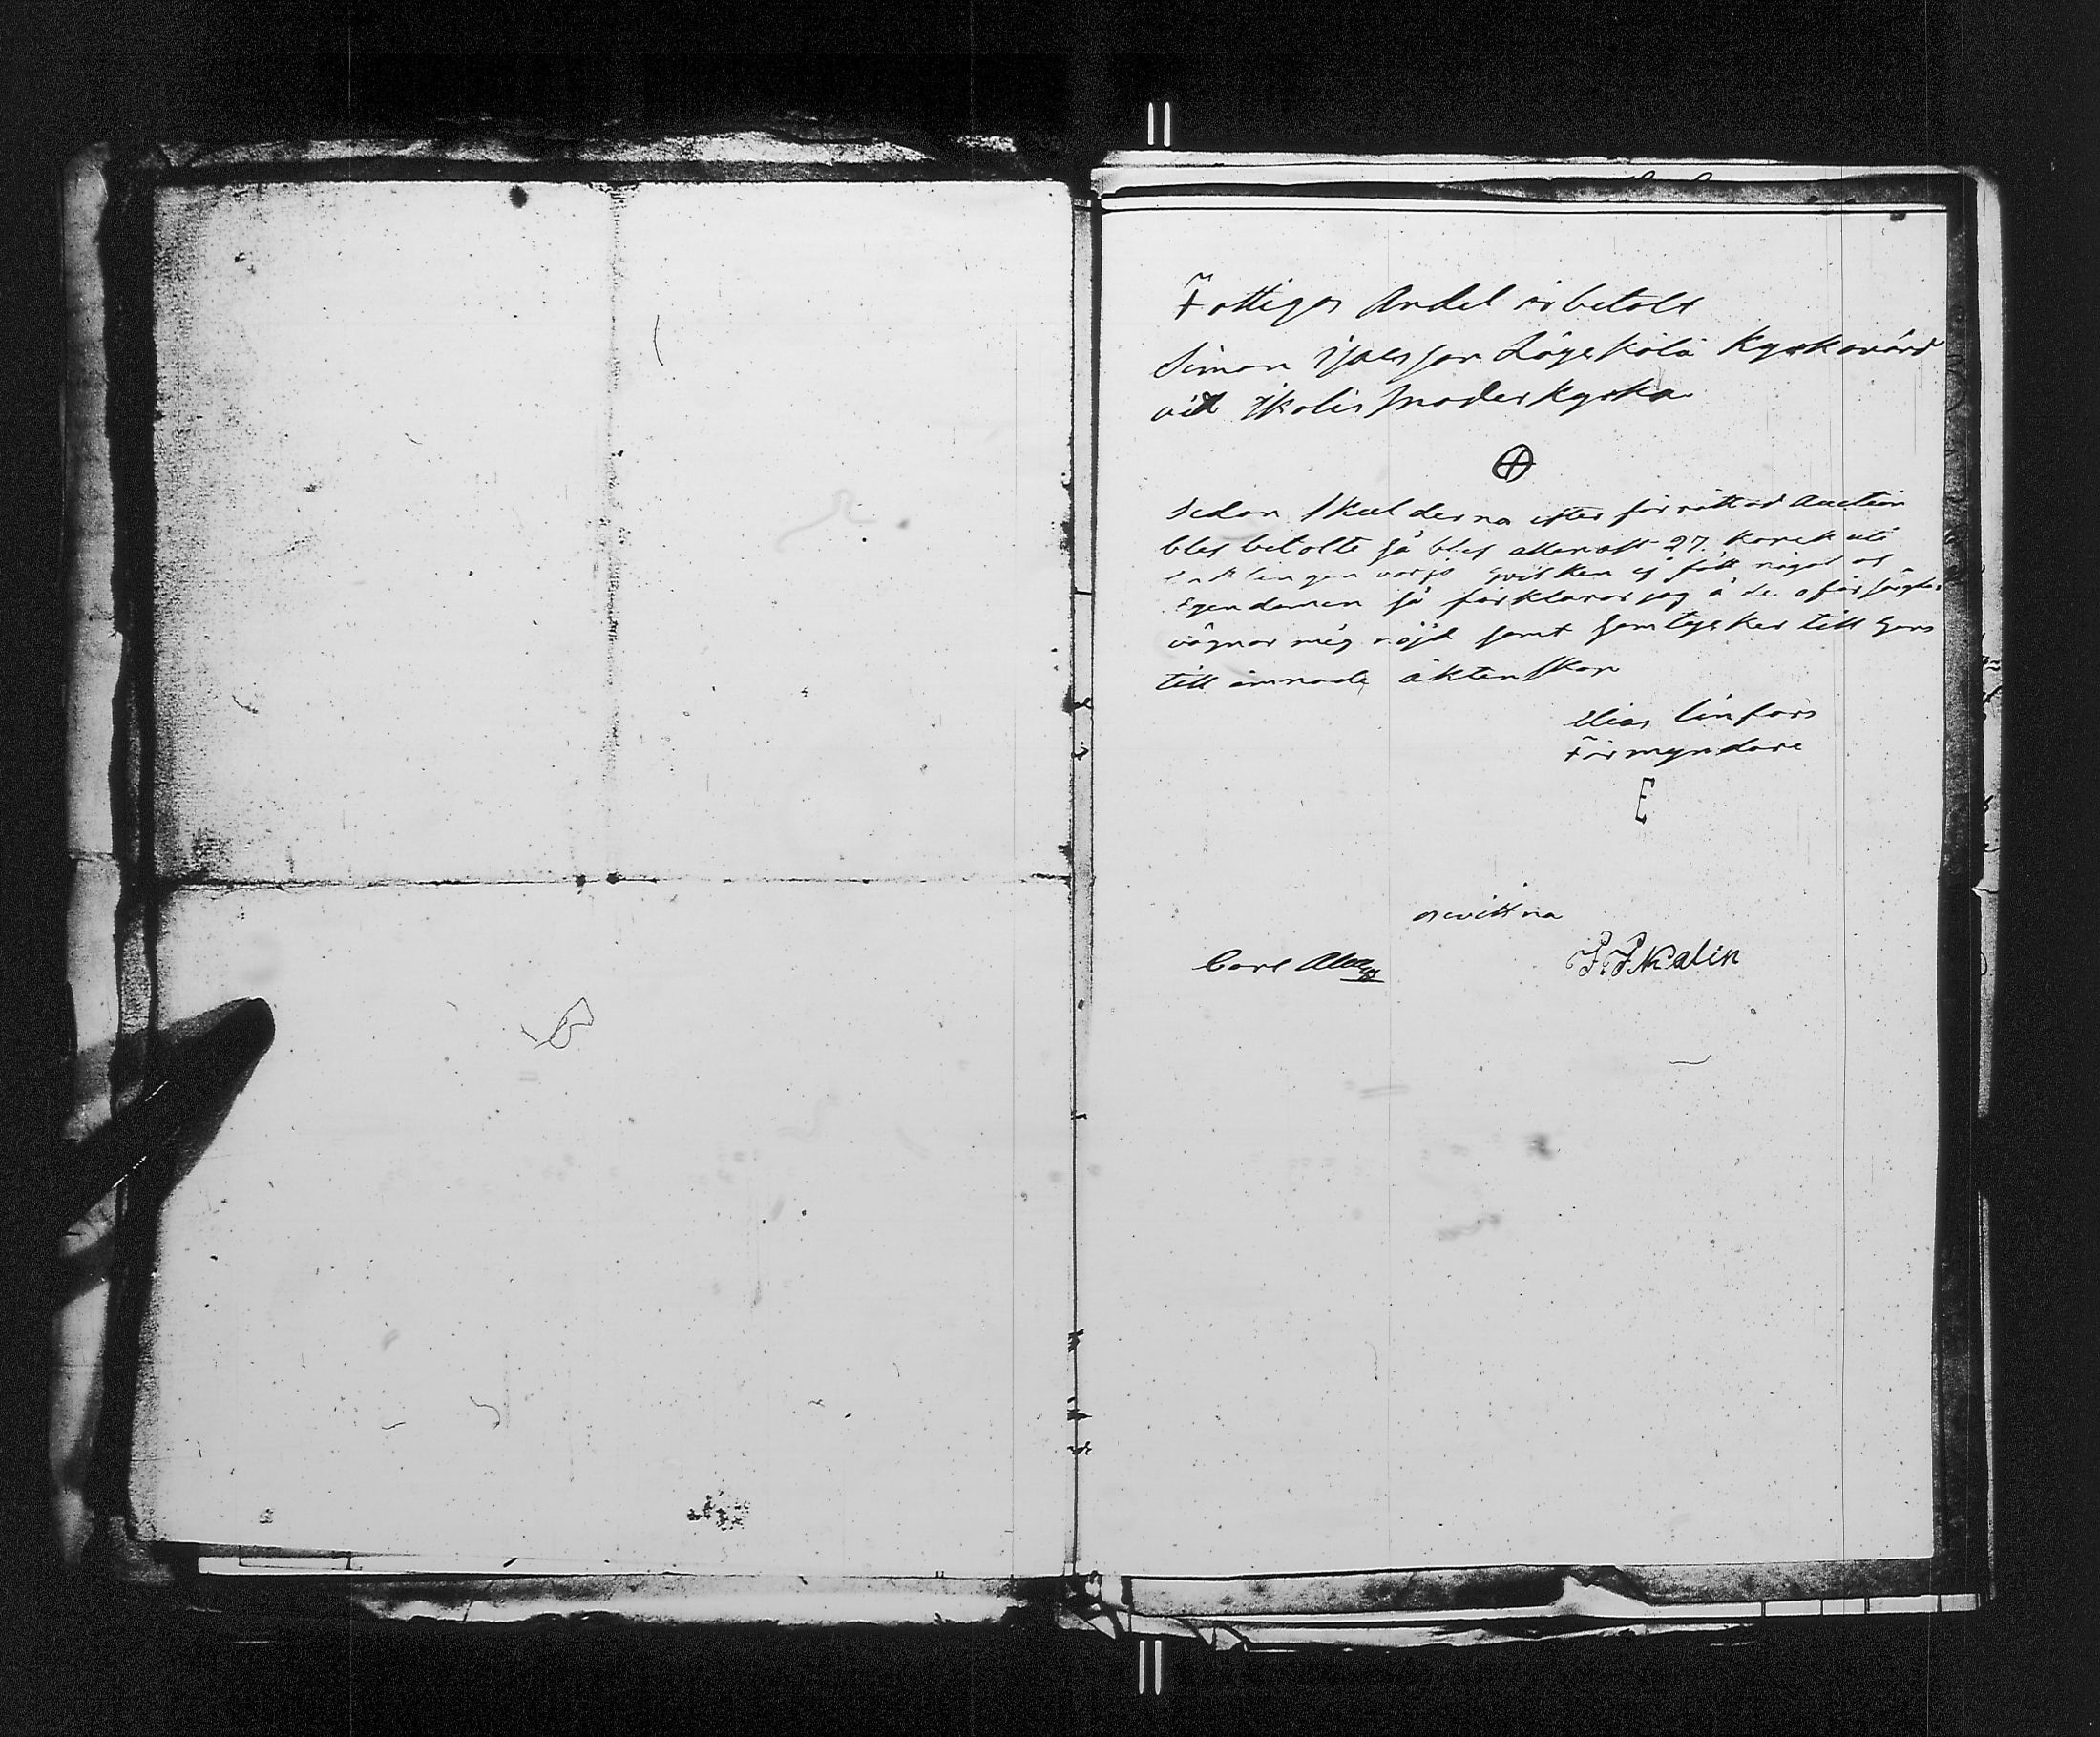 Fattiges Andel är betalt
Simon Isacsson Lågeskälä Kyrkovärd
vid Ikalis Moderkyrka
Sedan skulderna efter förrättad Auction
blef betalte så blef allenast 27. kopek uti
varje hvilken ej fått något af
Egendomen så förklarar jag å de oförsörgdas
vägnar mig nöjd samt samtycker till hans
till ämnade äktenskap
Elias Linfors
Förmyndare
E
Bevittna
Carl
Malin